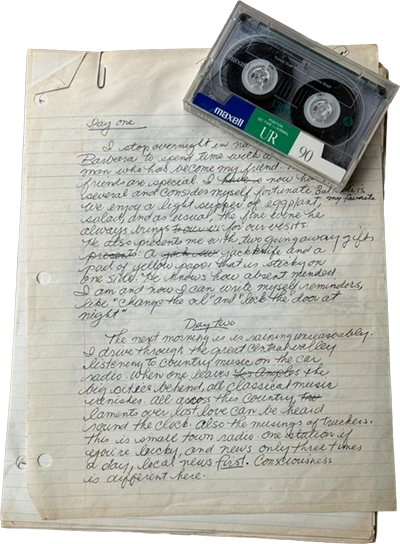 Day one
I stop overnight in
Barbara to spend time with a
man who has become my friend.
friends are special. I have now
several and consider myself fortunate. But
we enjoy a light supper of eggplant, my favorite
salad, and as usual, the fine wine he
always brings for our visits.
He also presents me with two going away gifts
presents. A jack knife and a
pad of yellow paper that is stacky on
one side. He knows how absent minded
I am and now I can write myself reminders,
like "change the oil" and "lock the door at
night"
Day two
The next morning it is raining unseasonably.
I drive through the great Central valley
listening to country music on the car
radio. When one leaves Los Angeles the
big cities behind all classical music
vanishes. All across this country
laments over lost love can be heard
round the clock. also the musings of truckers.
this is small town radio one station if
you're lucky, and news only three times
a day, local news first. Consciousness
is different here.
maxell
POSITION
UR
UR
90